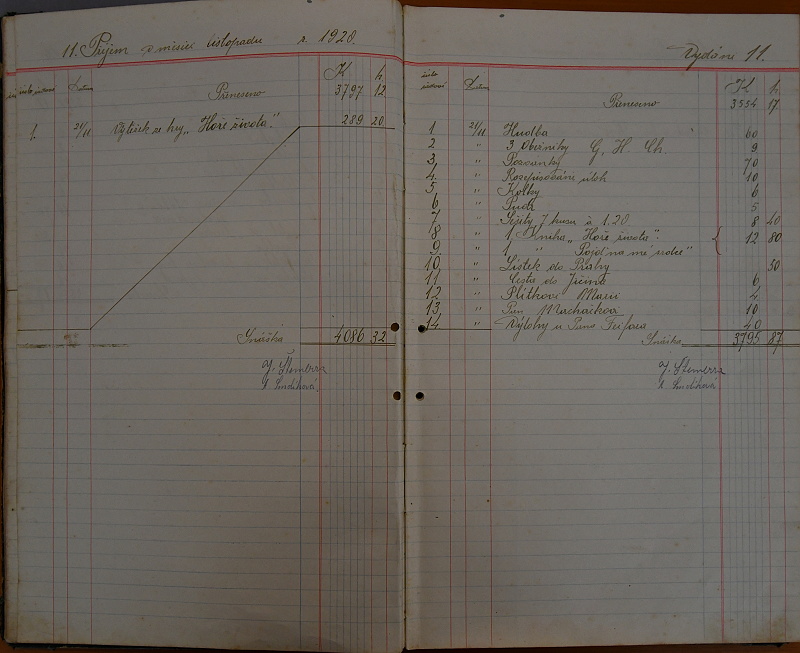 11. Příjem z měsíce listopadu r. 1920.
Datum K h
Přeneseno 3797 12
1. 21/11 Výtěžek ze hry „Hoře života". 289 20
Snáška 4086 32
J. Štemera
Vydání 11.
Datum K h
Přeneseno 3554 17
1 21/11 Hudba 60
2 " 3 Oběžníky G. H. Ch. 9
3, " Pozvánky 70
4. " Rozepisování úloh 10
5, " Kolky 6
6 " Pudr 5
7 " Sešity 7 kusů à 1.20 8 40
8 " 1 Kniha „Hoře života". 12 80
9. " 1 " „Pojď na mé srdce"
10, " Lístek do Prahy 50
11, " Cesta do Jičína 6
12 " Plítkové Marii 4
13, " Pan Macháčkova 10
14 " Výlohy u Pana Fejfara 40
Snáška 3795 87
J. Štemera